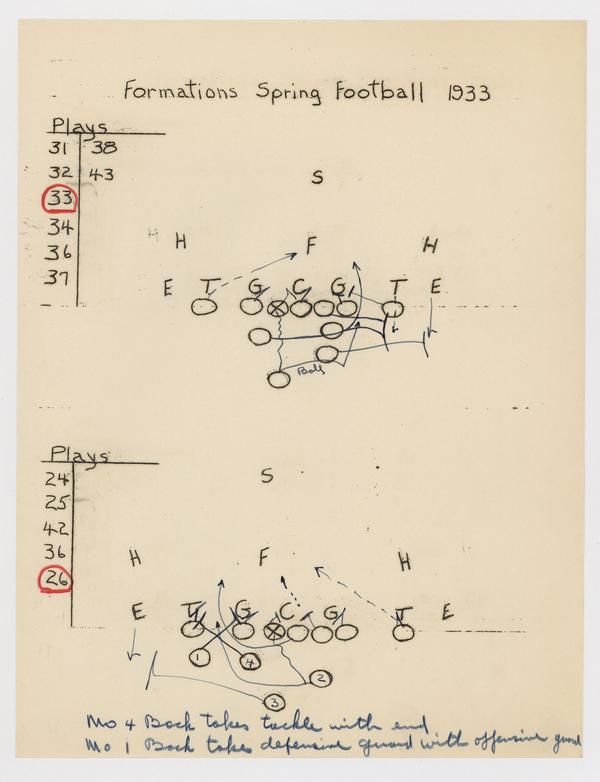 Formations Spring Football 1933
Plays
31 38
32 43
33
34
36
37
S
H F H
E T G C G T E
Ball
Plays
24
25
42
36
26
S
H F H
E T G C G T E
1 4
2
3
No 4 Back takes tackle with end
No 1 Back takes defensive guard with offensive guard